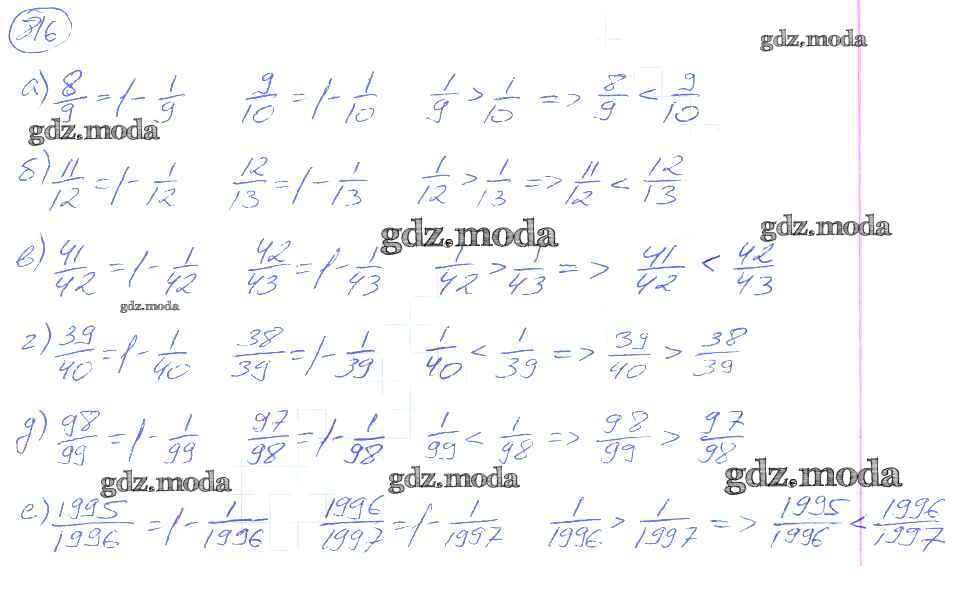 816
gdz.moda
а) 8/9 = 1 - 1/9 9/10 = 1 - 1/10 1/9 > 1/10 => 8/9 < 9/10
gdz.moda
б) 11/12 = 1 - 1/12 12/13 = 1 - 1/13 1/12 > 1/13 => 11/12 < 12/13
gdz.moda
gdz.moda
в) 41/42 = 1 - 1/42 42/43 = 1 - 1/43 1/42 > 1/43 => 41/42 < 42/43
gdz.moda
г) 39/40 = 1 - 1/40 38/39 = 1 - 1/39 1/40 < 1/39 => 39/40 > 38/39
д) 98/99 = 1 - 1/99 97/98 = 1 - 1/98 1/99 < 1/98 => 98/99 > 97/98
gdz.moda
gdz.moda
gdz.moda
е) 1995/1996 = 1 - 1/1996 1996/1997 = 1 - 1/1997 1/1996 > 1/1997 => 1995/1996 < 1996/1997